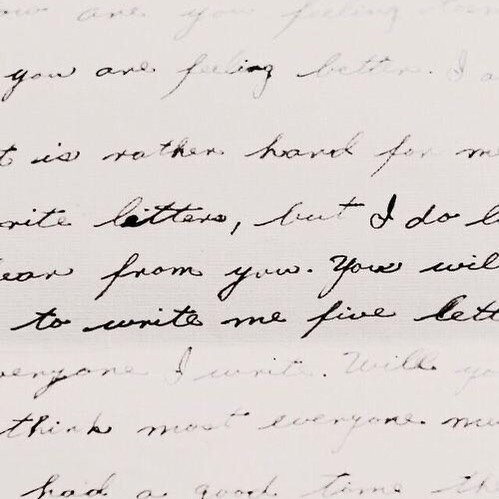 are you feeling
you are feeling better. I
t is rather hard for me
rite letters, but I do l
ear from you. You will
to write me five lett
veryone I write. Will yo
think most everyone mu
had a good time the